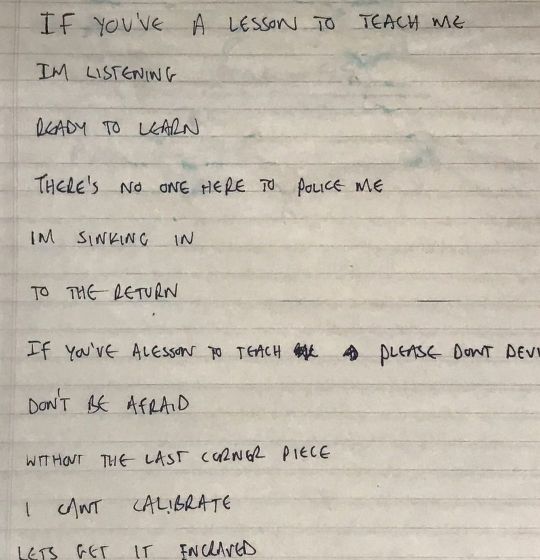 IF YOU'VE A LESSON TO TEACH ME
IM LISTENING
READY TO LEARN
THERE'S NO ONE HERE TO POLICE ME
IM SINKING IN
TO THE RETURN
IF YOU'VE A LESSON TO TEACH PLEASE DONT
DON'T BE AFRAID
WITHOUT THE LAST CORNER PIECE
I CANT CALIBRATE
LETS GET IT ENGRAVED